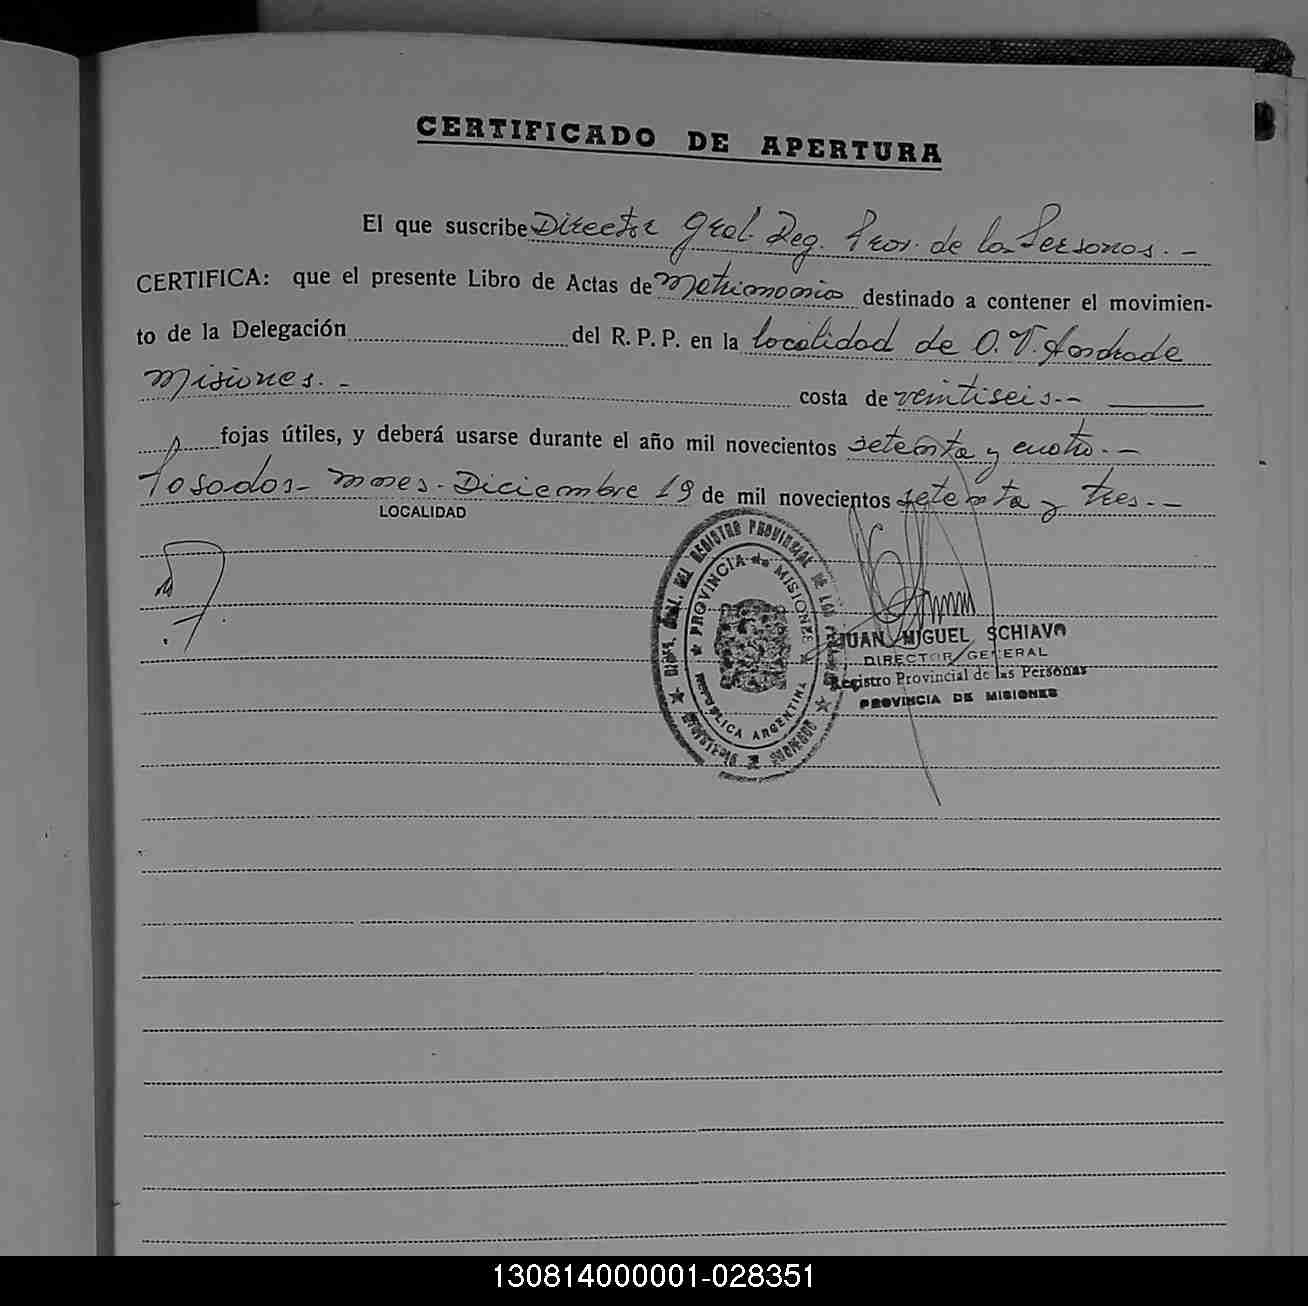 CERTIFICADO DE APERTURA
El que suscribe Director Gral. Reg. Prov. de las Personas. -
CERTIFICA: que el presente Libro de Actas de Matrimonios destinado a contener el movimien-
to de la Delegación del R. P. P. en la localidad de O. V. Andrade
Misiones. - costa de veintiseis. -
fojas útiles, y deberá usarse durante el año mil novecientos setenta y cuatro. -
Posadas - Mnes. - Diciembre 19 de mil novecientos setenta y tres. -
LOCALIDAD
DIREC. GRAL. DEL REGISTRO PROVINCIAL DE LAS PERSONAS
★ PROVINCIA de MISIONES ★
REPUBLICA ARGENTINA
★ MINISTERIO DE GOBIERNO ★
JUAN MIGUEL SCHIAVO
DIRECTOR GENERAL
Registro Provincial de las Personas
PROVINCIA DE MISIONES
130814000001-028351